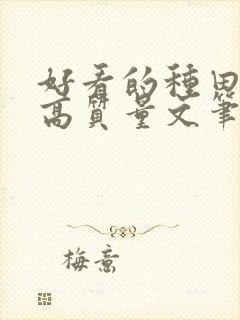 好看的種田
高質量文筆
梅意